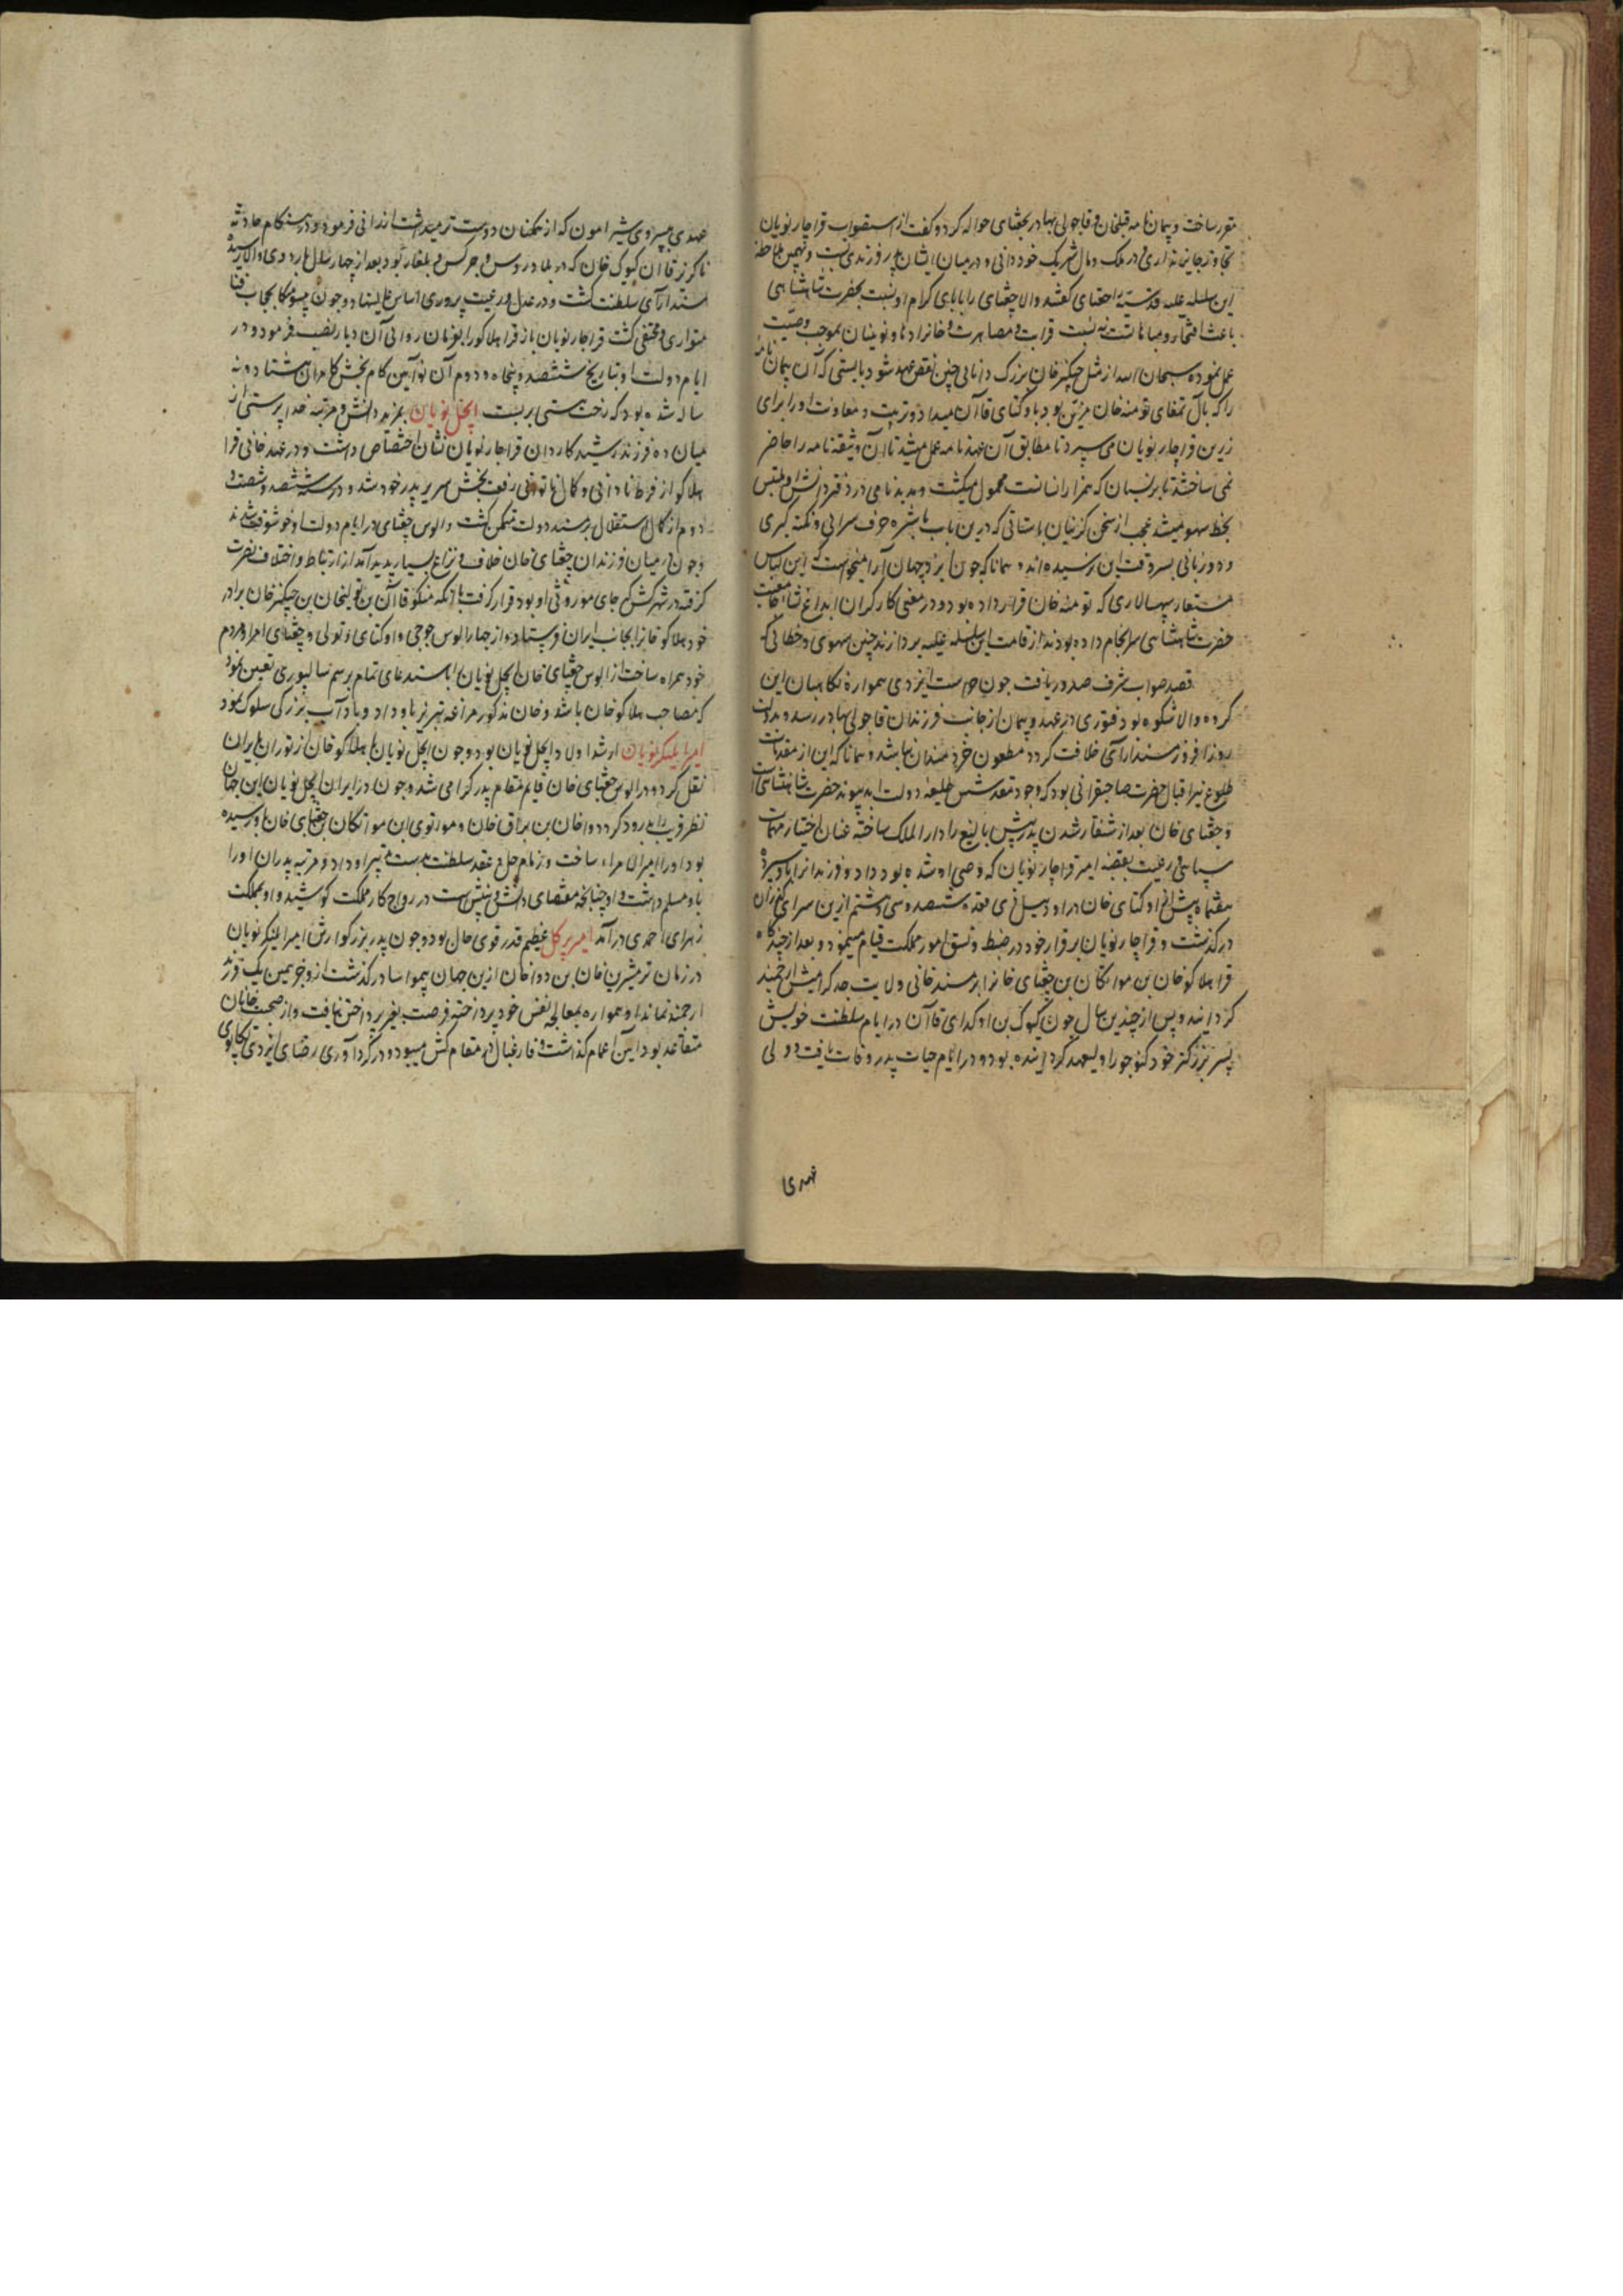 مقرر ساخت و پیمان نامه قبلخان و قاجولی بهادر بجغتای حواله کرد و گفت از استصواب قراچار نویان
تجاوز جایز نداری و در ملک و مال شریک خود دانی و در میان ایشان پدر فرزندی بست و بهمین ملاحظه
این سلسله علیه قدسیه را جغتای گفتند والا جغتای را بابای کرام او نسبت بحضرت شاهنشاهی
باعث افتخار و مباهات نسبت قرابت و مصاهرت و خانزادها و نوینیان بموجب وصیت
عمل نموده سبحان الله از مثل چنگیزخان بزرگ دانایی چنین نقض عهد شود بایستی که آن پیمان نامه
را که بآل تمغای تومنه خان مزین بود باوکتای قاآن میداد و تربیت و معاونت او را برای
زرین قراچار نویان می سپرد تا مطابق آن عهدنامه عمل میشد تا آن وثیقه نامه را حاضر
نمی ساختند تا بر نسیان که همزاد انسانست محمول میگشت و به بدنامی در دفتر دانش او ملتبس
بخط سهو میشد عجب از سخن گزینان باستانی که درین باب باشره حرف سرائی و نکته گیری
و ه و زبانی بسر وقت این نرسیده اند و همانا که چون ایزد جهان آرا میخواست که این لباس
مستعار سپهسالاری که تومنه خان قرار داده بود و در معنی کارگران ابداع نشاء جامعیت
حضرت شاهنشاهی سرانجام داده بودند از قامت این سلسله علیه بردارند چنین سهوی و خطائی که
قصد صواب شرف صدور یافت چون حراست ایزدی همواره نگاهبان این
گروه والا شکوه بود فتوری در عهد و پیمان از جانب فرزندان قاجولی بهادر رسد و بدولت
روز افزون مسند آرای خلافت گردد مطعون خردمندان باشد و همانا که این از مقدمات
طلوع نیر اقبال حضرت صاحبقرانی بود که وجود مقدسش طلیعه دولت ابد پیوند حضرت شاهنشاهی است
و جغتای خان بعد از شنقار شدن پدر بیش بالیغ را دارالملک ساخته عنان اختیار مهمات
سپاهی و رعیت بقبضه امیر قراچار نویان که وصی او شده بود داد و فرزندان را باو سپرده
هفتماه پیش از اوکتای خان در اود ییل ذی قعده ششصد و سی و هشتم ازین سرای گذران
درگذشت و قراچار نویان برقرار خود در ضبط و نسق امور مملکت قیام مینمود و بعد از چندگاه
قرا هلاکو خان بن مواتکان بن جغتای خان را بر مسند خانی ولایت جد گرامیش ارجمند
گردانید و پس از چندین سال چون گیوک بن اوکدای قاآن در ایام سلطنت خویش
پسر بزرگتر خود کنوجو را ولیعهد گردانیده بود و در ایام حیات پدر وفات یافت و ولی
عهدی
عهدی به پسر وی شیرامون که از همگنان دوست تر میداشت ارزانی فرمود و در هنگام حادثه
ناگزیر قاآن گیوک خان که در بلاد روس و چرکس و بلغار بود بعد از چهار سال باردوی والا رسیده
مسند آرای سلطنت گشت و در عدل و رعیت پروری اساس عالی نهاد و چون ییسومنکا بحجاب فنا
متواری و مختفی گشت قراچار نویان باز قرا هلاکو را بفرمان روائی آن دیار نصب فرمود و در
ایام دولت او بتاریخ ششصد و پنجاه و دوم آن نوآیین کام بخش کامران هشتاد و نه
ساله شده بود که رخت هستی بربست ایجل نویان بمزید دانش و مرتبه خدا پرستی از
میان ده فرزند رشید کاردان قراچار نویان نشان اختصاص داشت و در عهد خانی قرا
هلاکو از فرط دانائی و کمال توانائی رفعت بخش سریر پدر خود شد و در سنه ششصد و شصت و
دوم از کمال استقلال بر مسند دولت متمکن گشت و الوس جغتای در ایام دولت او خوشوقت شدند
و چون در میان فرزندان جغتای خان خلاف و نزاع بسیار پدید آمد از ارتباط و اختلاف نفرت
گرفته در شهر کش که جای موروثی او بود قرار گرفت تا آنکه منکو قاآن بن تولیخان بن چنگیزخان برادر
خود هلاکو خان را بجانب ایران فرستاد و از چهار الوس جوجی و اوکتای و تولی و جغتای امرا و مردم
خود همراه ساخت از الوس جغتای خان ایجل نویان را باستدعای تمام برسم سالیوری تعیین نمود
که مصاحب هلاکو خان باشد و خان مذکور مراغه تبریز باو داد و بآداب بزرگی سلوک نمود
امیر ایلنکر نویان ارشد اولاد ایجل نویان بود و چون ایجل نویان با هلاکو خان از توران بایران
نقل کرد و در الوس جغتای خان قایم مقام پدر گرامی شد و چون در ایران ایجل نویان این جهان
نظر فریب را بدرود کرد دوا خان بن براق خان و مواتوی ابن مواتکان بن جغتای خان باو رسیده
بود او را امیر الامراء ساخت و زمام حل و عقد سلطنت بدست تدبیر او داد و مرتبه پدران او را
باو مسلم داشت و او چنانچه مقتضای دانش و بینش است در رواج کار مملکت کوشید و او بمملکت
زهرای احمدی درآمد امیر برکل عظیم قدر قوی حال بود و چون پدر بزرگوارش امیر ایلنکر نویان
در زمان ترمشیرین خان بن دوا خان ازین جهان بیمواسا درگذشت ازو جز همین یک فرزند
ارجمند نماند او همواره بمعالجه نفس خود پرداخته فرصت بغیر پرداختن نیافت و از صحبت خانان
متقاعد بود آیین اعمام گذاشت و فارغبال در مقام کش میبود و در گردآوری رضای ایزدی تکاپوی